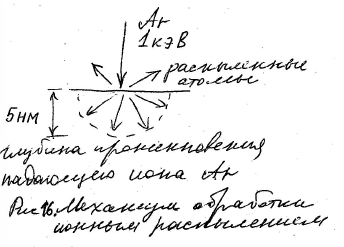 Ar
1кэВ
распыленные
атомы
5нм
глубина проникновения
падающего иона Ar
Рис 16. Механизм обработки
ионным распылением